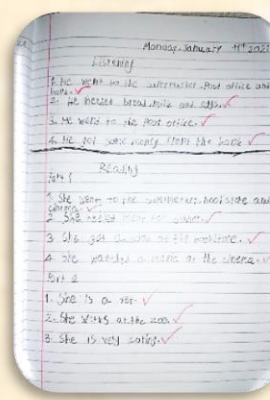 Monday, January 11th 202
Listening
1. He went to the supermarket, Post office and
bank.
2. He needed bread, milk and
3. He went to the Post office.
4. He got some money from the bank
Reading
Part 1
1. She went to the supermarket, bookstore and
cinema.
2. She needed meat for dinner.
3. She got at the bookstore.
4. She watched a movie at the cinema.
Part 2
1. She is a vet.
2. She works at the zoo.
3. She is very